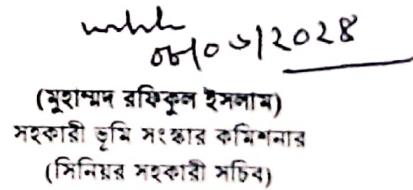 ২০২৪
(মুহাম্মদ রফিকুল ইসলাম)
সহকারী ভূমি সংস্কার কমিশনার
(সিনিয়র সহকারী সচিব)